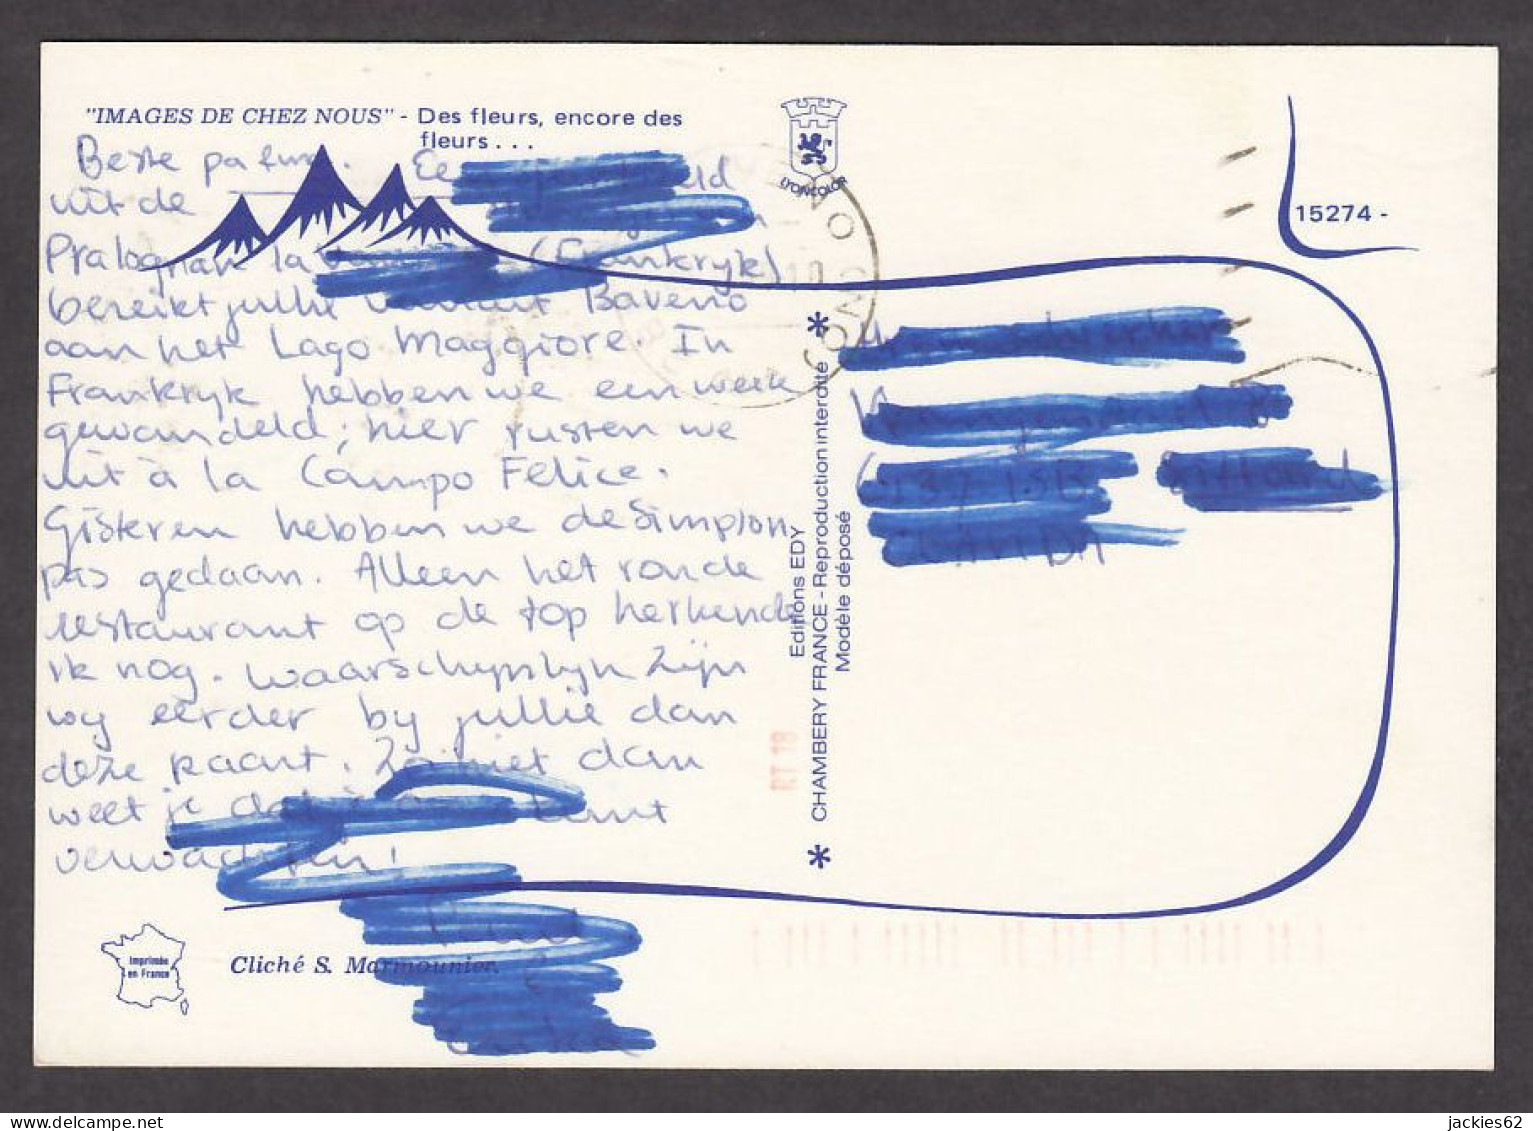 "IMAGES DE CHEZ NOUS" - Des fleurs, encore des
fleurs...
LYONCOLOR
15274 -
Beste
uit de
Pralognan la (Frankryk)
bereikt jullie vanuit Baveno
aan het Lago Maggiore. In
Frankryk hebben we een week
gewandeld; hier rusten we
uit à la Campo Felice.
Gisteren hebben we de Simplon
pas gedaan. Alleen het ronde
restaurant op de top herkende
ik nog. Waarschynlyk zijn
wy eerder by jullie dan
deze kaart. Zo niet dan
weet je dat kunt
verwachten!
Editions EDY
* CHAMBERY FRANCE - Reproduction interdite *
Modèle déposé
RT 18
Imprimée
en France
Cliché S. Marmounier.
delcampe.net
jackies62